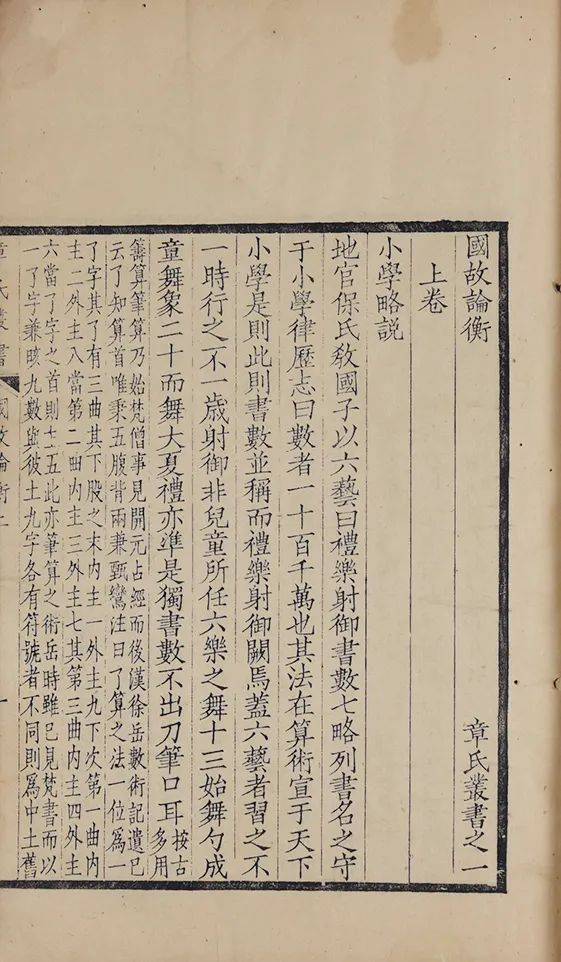 國故論衡
章氏叢書之一
上卷
小學略説
地官保氏敎國子以六藝曰禮樂射御書數七略列書名之守
于小學律歷志曰數者一十百千萬也其法在算術宣于天下
小學是則此則書數並稱而禮樂射御闕焉蓋六藝者習之不
一時行之不一歲射御非兒童所任六樂之舞十三始舞勺成
童舞象二十而舞大夏禮亦準是獨書數不出刀筆口耳
按古
多用
籌算筆算乃始梵僧事見開元占經而後漢徐岳數術記遺已
云了知算首唯秉五腹背兩兼甄鸞注曰了算之法一位爲一
了字其了有三曲其下股之末内主一外主九下次第一曲内
主二外主八當第二曲内主三外主七其第三曲内主四外主
六當了字之首則主五此亦筆算之術岳時雖已見梵書而以
一了字兼晐九數與彼土九字各有符號者不同則爲中土舊
章氏叢書
國故論衡上
一